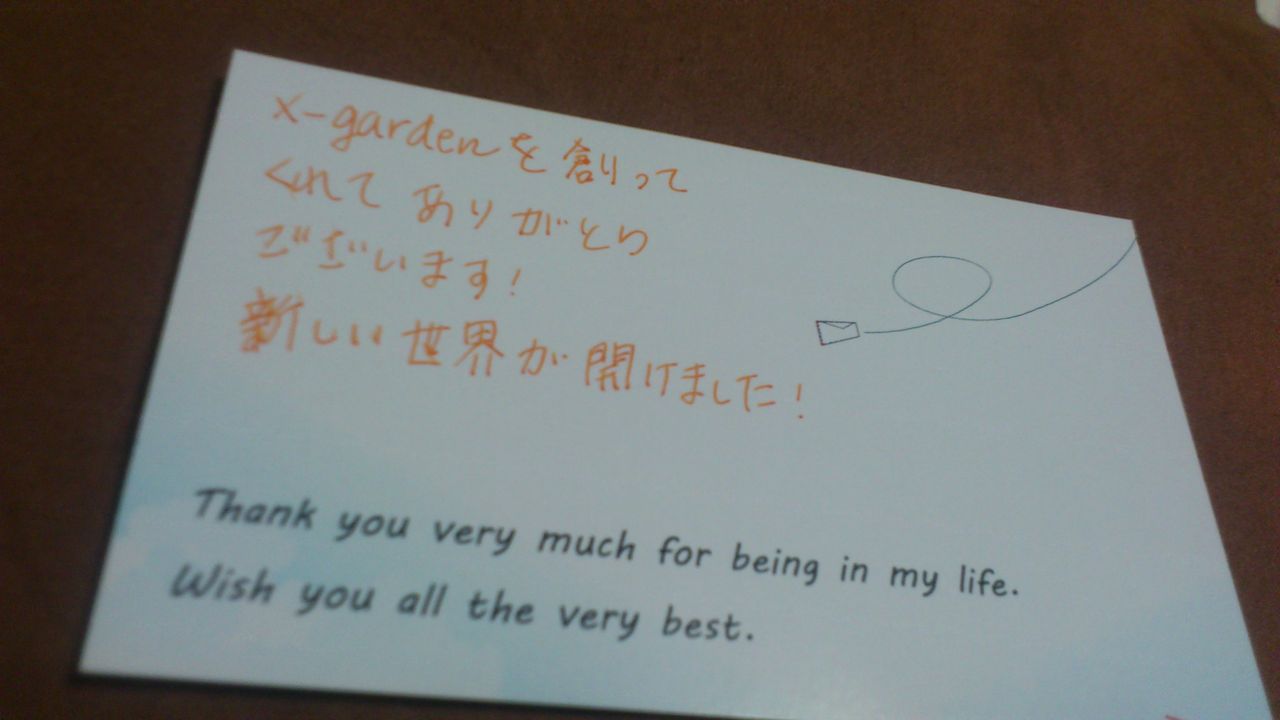 x-gardenを創って
くれて ありがとう
ございます!
新しい世界が開けました!
Thank you very much for being in my life.
Wish you all the very best.